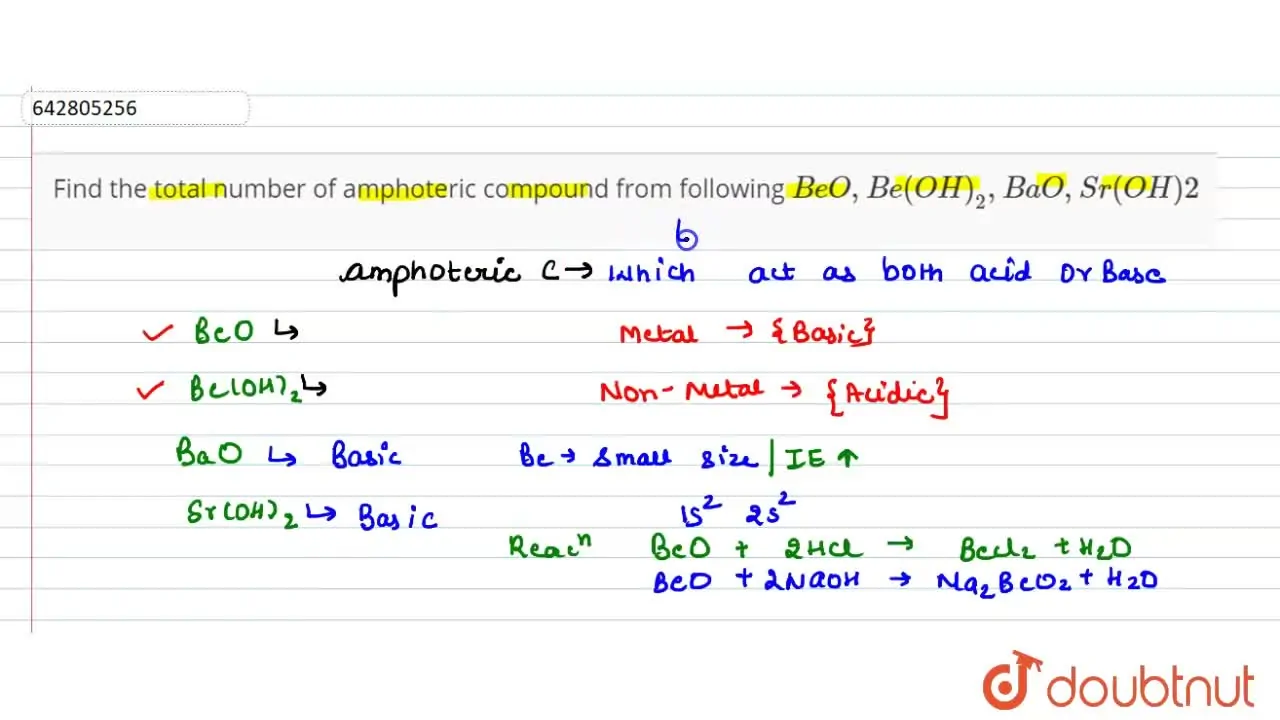 642805256
Find the total number of amphoteric compound from following BeO, Be(OH)₂, BaO, Sr(OH)2
b
amphoteric C → which act as both acid or Base
✓ BeO ↳ Metal → {Basic}
✓ Be(OH)₂ ↳ Non-Metal → {Acidic}
BaO ↳ Basic Be → small size | IE ↑
Sr(OH)₂ ↳ Basic 1s² 2s²
Reacⁿ BeO + 2HCl → BeCl₂ + H₂O
BeO + 2NaOH → Na₂BeO₂ + H₂O
doubtnut